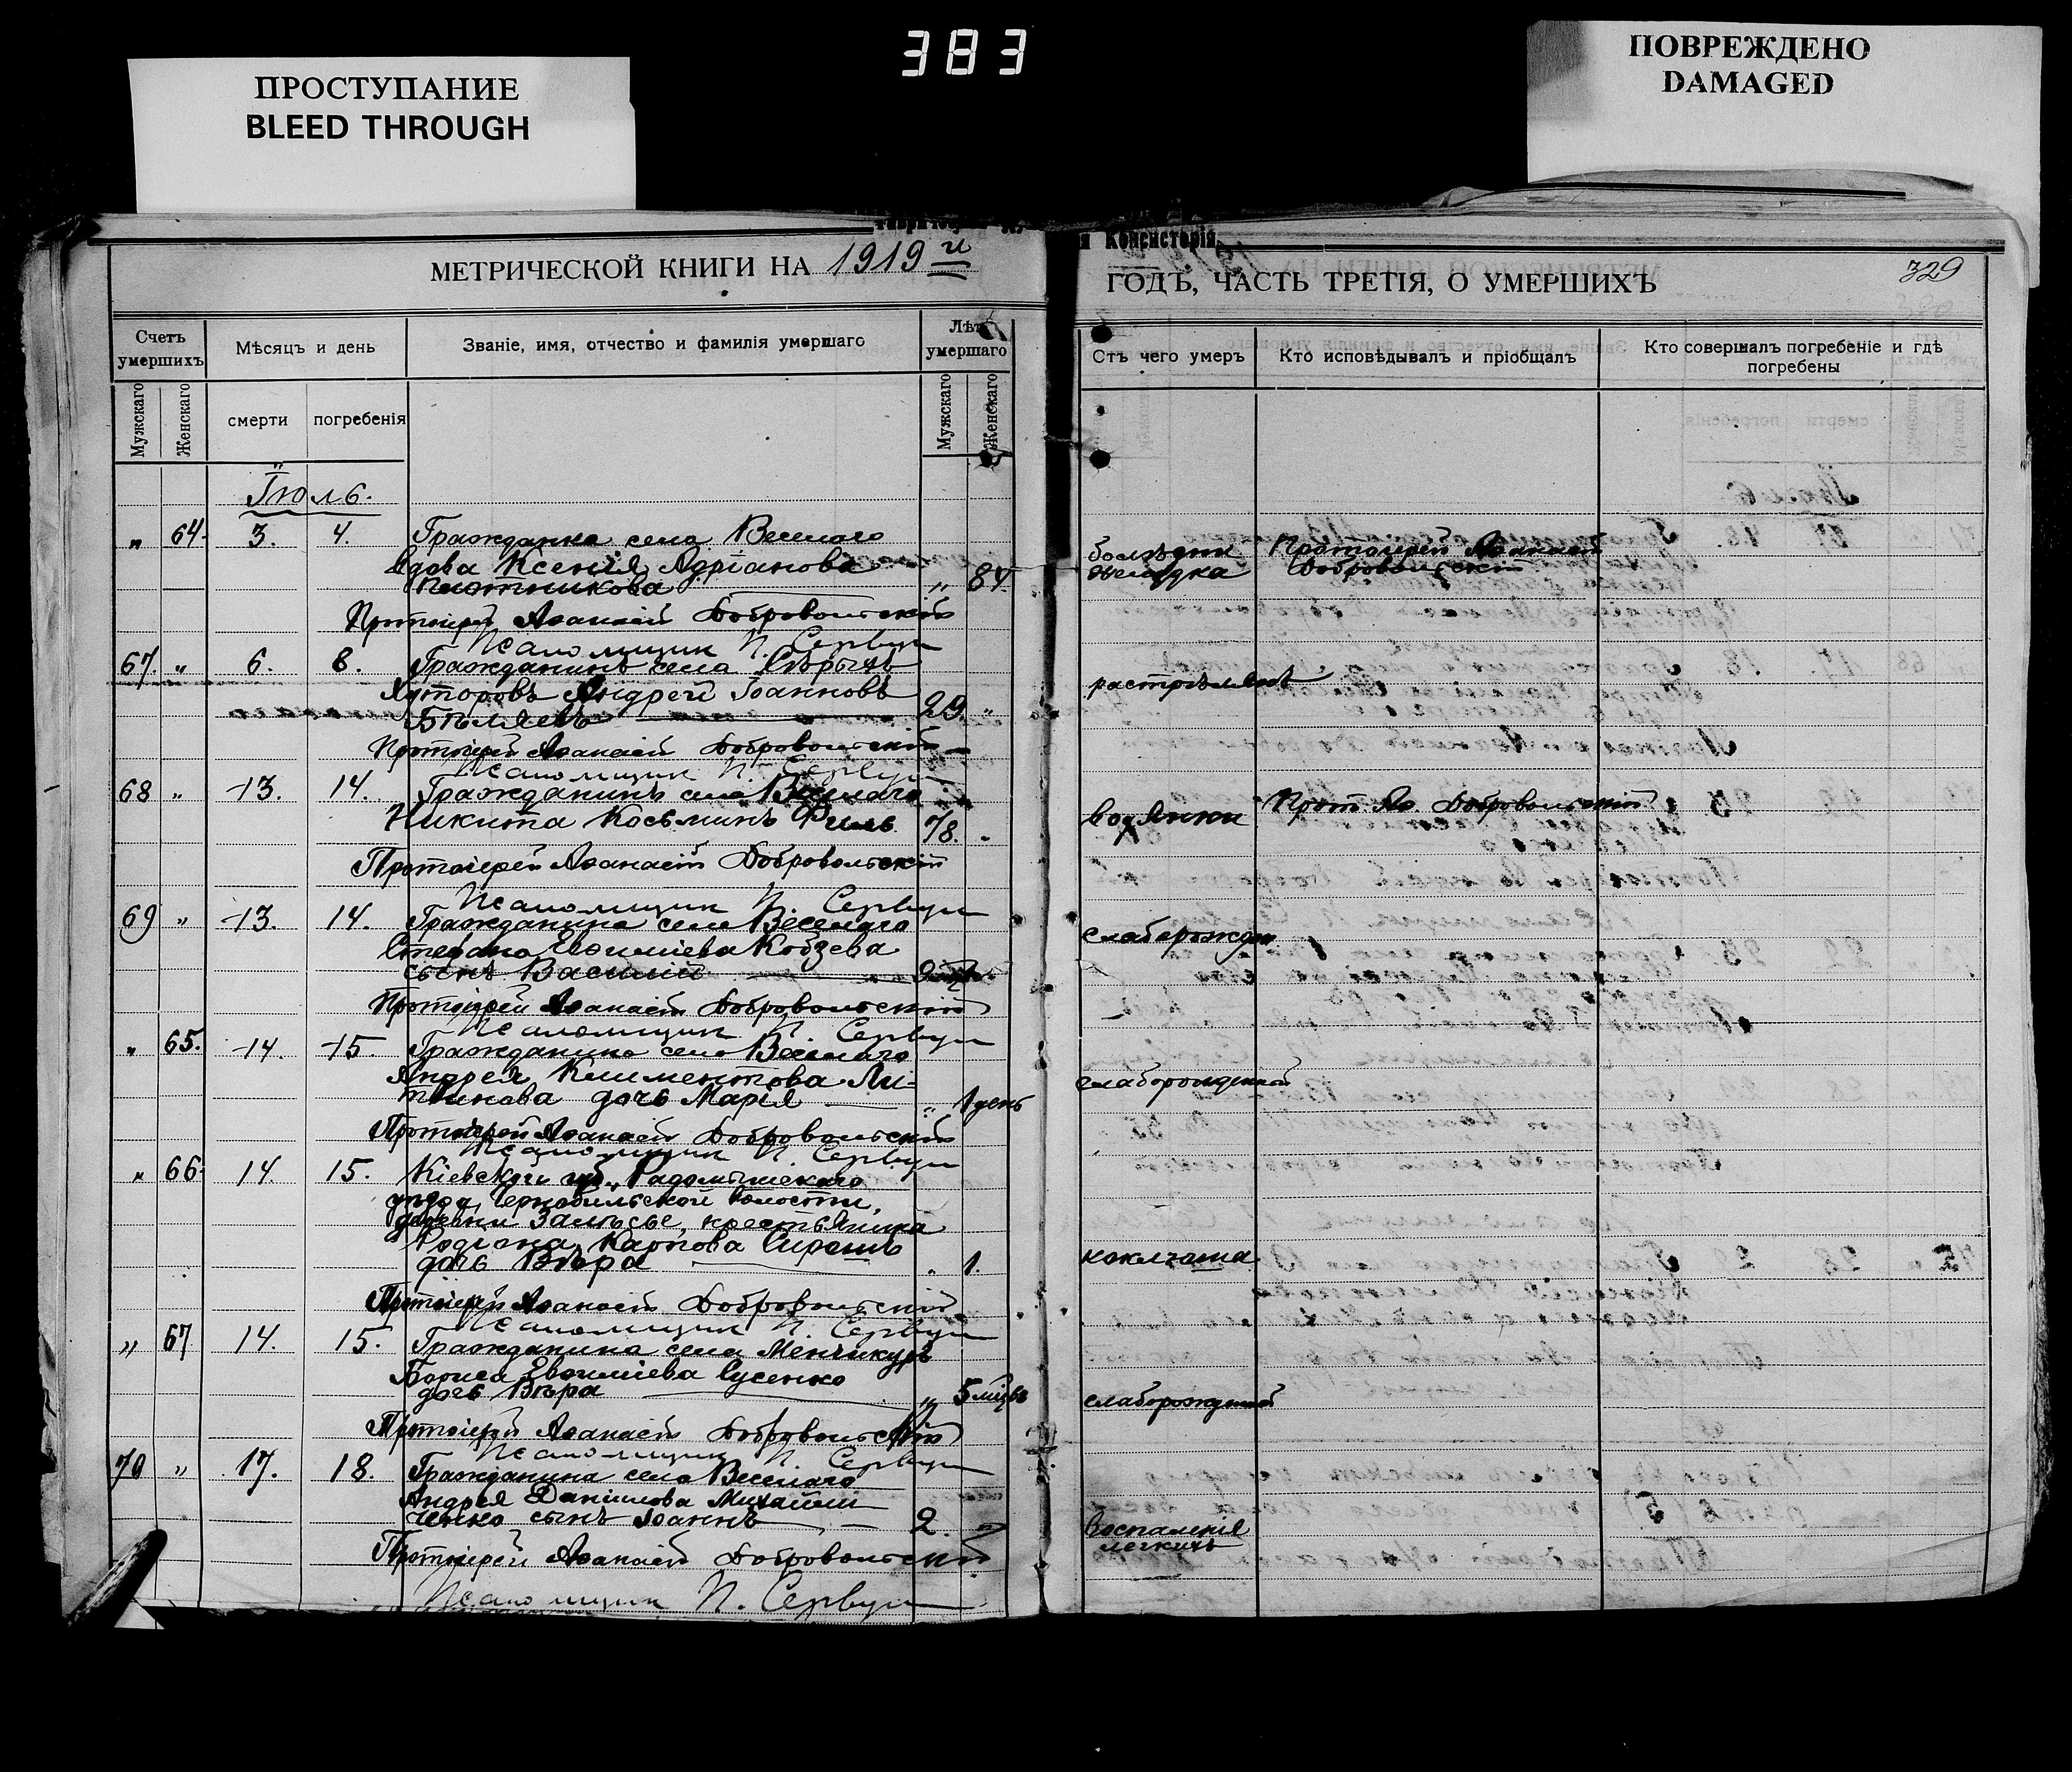 383
ПРОСТУПАНИЕ
BLEED THROUGH
ПОВРЕЖДЕНО
DAMAGED
я Консисторія
МЕТРИЧЕСКОЙ КНИГИ НА 1919 й
ГОДЪ, ЧАСТЬ ТРЕТІЯ, О УМЕРШИХЪ
329
Счетъ умершихъ
Мужскаго
Женскаго
Мѣсяцъ и день
смерти
погребенія
Званіе, имя, отчество и фамилія умершаго
Лѣта умершаго
Мужскаго
Женскаго
Отъ чего умеръ
Кто исповѣдывалъ и пріобщалъ
Кто совершалъ погребеніе и гдѣ
погребены
Іюль.
„ 64. 3. 4. Гражданка села Веселаго
вдова Ксенія Адріанова
Плотникова „ 84.
болѣзни Протоіерей Аѳанасій
желудка Добровольскій
Протоіерей Аѳанасій Добровольскій
Псаломщик П.
67. „ 6. 8. Гражданинъ села
Хуторовъ Андрей Іоанновъ
Бѣляевъ 29. „
растрѣлянъ
Протоіерей Аѳанасій Добровольскій
Псаломщик П.
68 „ 13. 14. Гражданинъ села Веселаго
Никита Косьминъ Филь 78. „
водянки Прот. Аѳ. Добровольскій
Протоіерей Аѳанасій Добровольскій
Псаломщик П.
69 „ 13. 14. Гражданина села Веселаго
Стефана Евѳиміева Кобзева
сынъ Василій
слаборожден
Протоіерей Аѳанасій Добровольскій
Псаломщик П.
„ 65. 14. 15. Гражданина села Веселаго
Андрея Климентова Ли-
твинова дочь Марія „ 1 день
слаборожденной
Протоіерей Аѳанасій Добровольскій
Псаломщик П.
„ 66. 14. 15. Кіевской губ., Радомысльскаго
уѣзда, Чернобыльской волости,
деревни Залѣсье, крестьянина
Родіона Карпова
дочь Вѣра „ 1.
коклюша
Протоіерей Аѳанасій Добровольскій
Псаломщик П.
„ 67 14. 15. Гражданина села Менчикуръ
Бориса Евѳиміева Сусенко
дочь Вѣра „ 5 мѣс
слаборожденной
Протоіерей Аѳанасій Добровольскій
Псаломщик П.
70 „ 17. 18. Гражданина села Веселаго
Андрея Даніилова Михайли
ченко сынъ Іоаннъ 2 „
воспаленія
легкихъ
Протоіерей Аѳанасій Добровольскій
Псаломщик П.